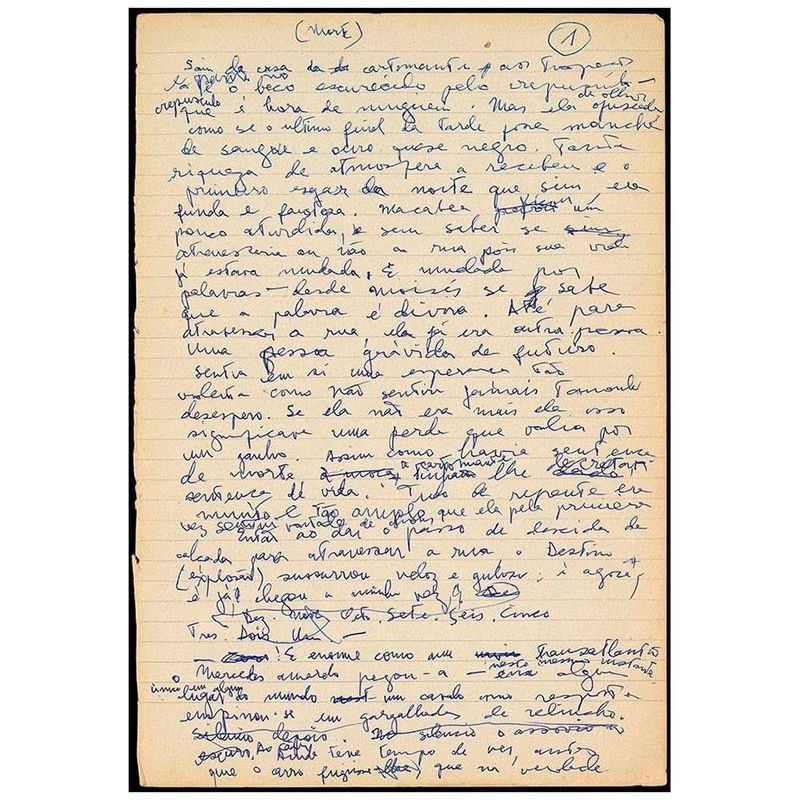 (Morte) 1
Saiu da casa da cartomante aos tropeços
e parou no beco escurecido pelo crepúsculo —
crepúsculo que é hora de ninguém. Mas ela de olhos ofuscada
como se o ultimo final da tarde fosse mancha
de sangue e ouro quase negro. Tanta
riqueza de atmosfera a recebeu e o
primeiro esgar da noite que sim era
funda e faustosa. Macabea ficou um
pouco aturdida, e sem saber se
atravessaria ou não a rua pois sua vida
já estava mudada. E mudada por
palavras — desde Moisés se sabe
que a palavra é divina. Até para
atravessar a rua ela já era outra pessoa.
Uma pessoa grávida de futuro.
Sentia em si uma esperança tão
violenta como não sentira jamais tamanho
desespero. Se ela não era mais ela isso
significava uma perda que valia por
um ganho. Assim como havia sentença
de morte a cartomante lhe decretara
sentença de vida. Tudo de repente era
muito e tão amplo que ela pela primeira
vez sentiu vontade de
Então ao dar o passo de descida da
calçada para atravessar a rua o Destino
(explosão) sussurrou veloz e guloso: é agora,
é já! chegou a minha vez!
Dez. Nove. Oito. Sete. Seis. Cinco
Tres. Dois Um. —
— ! E enorme como um transatlântico
o Mercedes amarelo pegou-a — neste mesmo instante em algum
único lugar do mundo um cavalo como resposta
empinou-se em gargalhadas de relincho.
Silencio depois. silencio o
escuro. Ao cair ainda teve tempo de ver antes
que o carro fugisse que na verdade